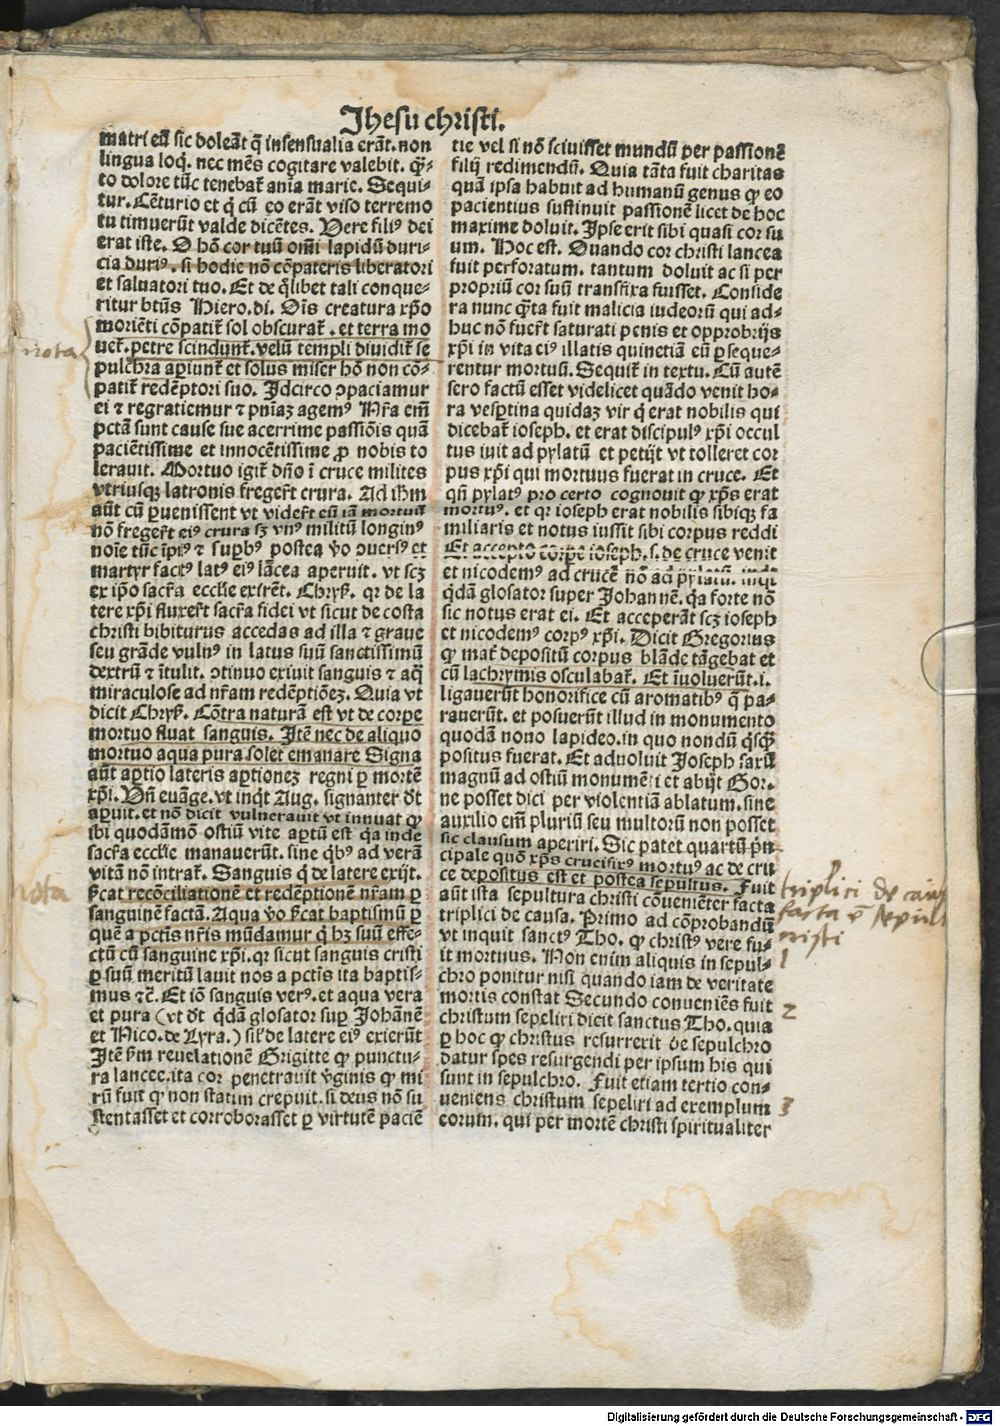 Jhesu christi.
matri eū sic doleāt q̄ insensualia erāt. non
lingua loq̇. nec mēs cogitare valebit. q̄ꝫ-
to dolore tūc tenebat̄ aĩa marie. Sequi-
tur. Cēturio et q̇ cū eo erāt viso terremo
tu timuerūt valde dicētes. Vere filiꝰ dei
erat iste. O hō cor tuū om̄i lapidū duri-
cia duriꝰ. si hodie nō cōpateris liberatori
et saluatori tuo. Et de q̄libet tali conque-
ritur btūs Hiero. di. Oīs creatura xp̄o
moriēti cōpatit̄ sol obscurat̄. et terra mo
uet̄. petre scindunt̄. velū templi diuidit̄ se
pulchra aꝑiunt̄ et solus miser hō non cō-
patit̄ redēptori suo. Jdcirco ꝯpaciamur
ei ⁊ regratiemur ⁊ pn̄iaꝫ agemꝰ Nr̄a em̄
pctā sunt cause sue acerrime passiōis quā
paciētissime et innocētissime ꝓ nobis to
lerauit. Mortuo igit̄ dn̄o ī cruce milites
vtriusqꝫ latronis fregert̄ crura. Ad ihm
aūt cū ꝑuenissent vt vidert̄ eū iā mortuū
nō fregert̄ eiꝰ crura sꝫ vnꝰ militū longinꝰ
noīe tūc īpiꝰ ⁊ suꝑbꝰ postea v̄o ꝯuersꝰ et
martyr factꝰ latꝰ eiꝰ lācea aperuit. vt scꝫ
ex ip̄o sacr̄a eccl̄ie exirēt. Chryſ. qꝛ de la
tere xp̄i fluxert̄ sacr̄a fidei vt sicut de costa
christi bibiturus accedas ad illa ⁊ graue
seu grāde vulnꝰ in latus suū sanctissimū
dextrū ⁊ ītulit. ꝯtinuo exiuit sanguis ⁊ aq̄
miraculose ad nr̄am redēptiōeꝫ. Quia vt
dicit Chryſ. Cōtra naturā est vt de corpe
mortuo fluat sanguis. Jtē nec de aliquo
mortuo aqua pura solet emanare Signa
aūt aꝑtio lateris aꝑtioneꝫ regni ꝑ mortē
xp̄i. Vn̄ euāge. vt inq̇t Aug. signanter dt̄
aꝑuit. et nō dicit vulnerauit vt innuat ꝙ
ibi quodāmō ostiū vite aꝑtū est q̄a inde
sacr̄a eccl̄ie manauerūt. sine q̇bꝰ ad verā
vitā nō intrat̄. Sanguis q̇ de latere exijt.
ſ̄cat recōciliationē et redēptionē nr̄am ꝑ
sanguinē factā. Aqua v̄o ſ̄cat baptismū ꝑ
quē a pctīs nr̄is mūdamur q̇ hꝫ suū effe-
ctū cū sanguine xp̄i. qꝛ sicut sanguis cristi
ꝑ suū meritū lauit nos a pctīs ita baptis-
mus ⁊c̄. Et iō sanguis verꝰ. et aqua vera
et pura (vt dt̄ q̇dā glosator suꝑ Johānē
et Nico. de Lyra.) sil̄ de latere eiꝰ exierūt
Jtē ſm̄ reuelationē Brigitte ꝙ punctu-
ra lancee. ita cor penetrauit v̄ginis ꝙ mi
rū fuit ꝙ non statim crepuit. si deus nō su
stentasset et corroborasset ꝑ virtutē paciē
tie vel si nō sciuisset mundū per passionē
filij redimendū. Quia tāta fuit charitas
quā ipsa habuit ad humanū genus ꝙ eo
pacientius sustinuit passionē licet de hoc
maxime doluit. Jpse erit sibi quasi cor su
um. Hoc est. Quando cor christi lancea
fuit perforatum. tantum doluit ac si per
propriū cor suū transfixa fuisset. Conside
ra nunc q̄ta fuit malicia iudeorū qui ad-
huc nō fuert̄ saturati penis et opprobrijs
xp̄i in vita eiꝰ illatis quinetiā eū ꝑseque-
rentur mortuū. Sequit̄ in textu. Cū autē
sero factū esset videlicet quādo venit ho-
ra vesꝑtina quidaꝫ vir q̇ erat nobilis qui
dicebat̄ ioseph. et erat discipulꝰ xp̄i occul
tus iuit ad pylatū et petijt vt tolleret cor
pus xp̄i qui mortuus fuerat in cruce. Et
qn̄ pylatꝰ pro certo cognouit ꝙ xp̄s erat
mortuꝰ. et qꝛ ioseph erat nobilis sibiqꝫ fa
miliaris et notus iussit sibi corpus reddi
Et accepto corpe ioseph. s. de cruce venit
et nicodemꝰ ad crucē nō ad pylatū. inq̇t
q̇dā glosator super Johannē. q̄a forte nō
sic notus erat ei. Et acceperāt scꝫ ioseph
et nicodemꝰ corpꝰ xp̄i. Dicit Gregorius
ꝙ mat̄ depositū corpus blāde tāgebat et
cū lachrymis osculabat̄. Et īuoluerūt. i.
ligauerūt honorifice cū aromatibꝰ q̄ pa-
rauerūt. et posuerūt illud in monumento
quodā nono lapideo. in quo nondū q̇sq̄
positus fuerat. Et aduoluit Joseph saxū
magnū ad ostiū monumēti et abijt Gor.
ne posset dici per violentiā ablatum. sine
auxilio em̄ pluriū seu multorū non posset
sic clausum aperiri. Sic patet quartū p̄n-
cipale quō xp̄s crucifixꝰ mortuꝰ ac de cru
ce depositus est et postea sepultus. Fuit
aūt ista sepultura christi cōueniēter facta
triplici de causa. Primo ad cōprobandū
vt inquit sanctꝰ Tho. ꝙ christꝰ vere fu-
it mortuus. Non enim aliquis in sepul-
chro ponitur nisi quando iam de veritate
mortis constat Secundo conueniēs fuit
christum sepeliri dicit sanctus Tho. quia
ꝑ hoc ꝙ christus resurrexit de sepulchro
datur spes resurgendi per ipsum his qui
sunt in sepulchro. Fuit etiam tertio con-
ueniens christum sepeliri ad exemplum
eorum. qui per mortē christi spiritualiter
nota
nota
triplici de caus
facta ē sepul
cristi
1
2
3
Digitalisierung gefördert durch die Deutsche Forschungsgemeinschaft - DFG